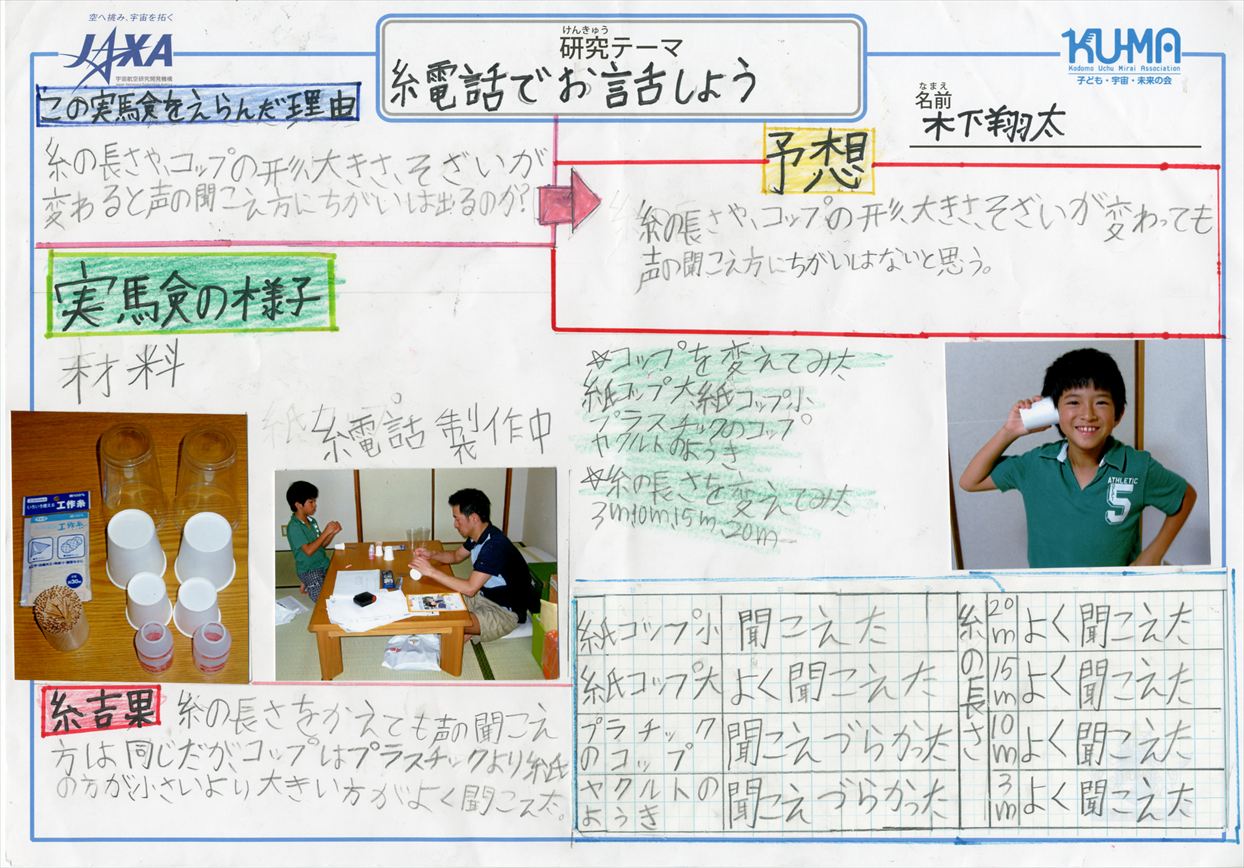 空へ挑み、宇宙を拓く
JAXA
宇宙航空研究開発機構
けんきゅう
研究テーマ
糸電話でお話しよう
KU-MA
Kodomo Uchu Mirai Association
子ども・宇宙・未来の会
なまえ
名前
木下翔太
この実験をえらんだ理由
糸の長さや、コップの形、大きさ、そざいが
変わると声の聞こえ方にちがいは出るのか?
予想
糸の長さや、コップの形、大きさ、そざいが変わっても
声の聞こえ方にちがいはないと思う。
実験の様子
材料
工作糸
糸電話製作中
☆コップを変えてみた
紙コップ大紙コップ小
プラスチックのコップ
ヤクルトのようき
☆糸の長さを変えてみた
3m10m、15m、20m
ATHLETIC
5
紙コップ小 聞こえた
紙コップ大 よく聞こえた
プラチック
のコップ 聞こえづらかった
ヤクルトの
ようき 聞こえづらかった
糸の長さ
20m よく聞こえた
15m よく聞こえた
10m よく聞こえた
3m よく聞こえた
結果
糸の長さをかえても声の聞こえ
方は同じだが、コップはプラスチックより紙
の方が小さいより大きい方がよく聞こえた。